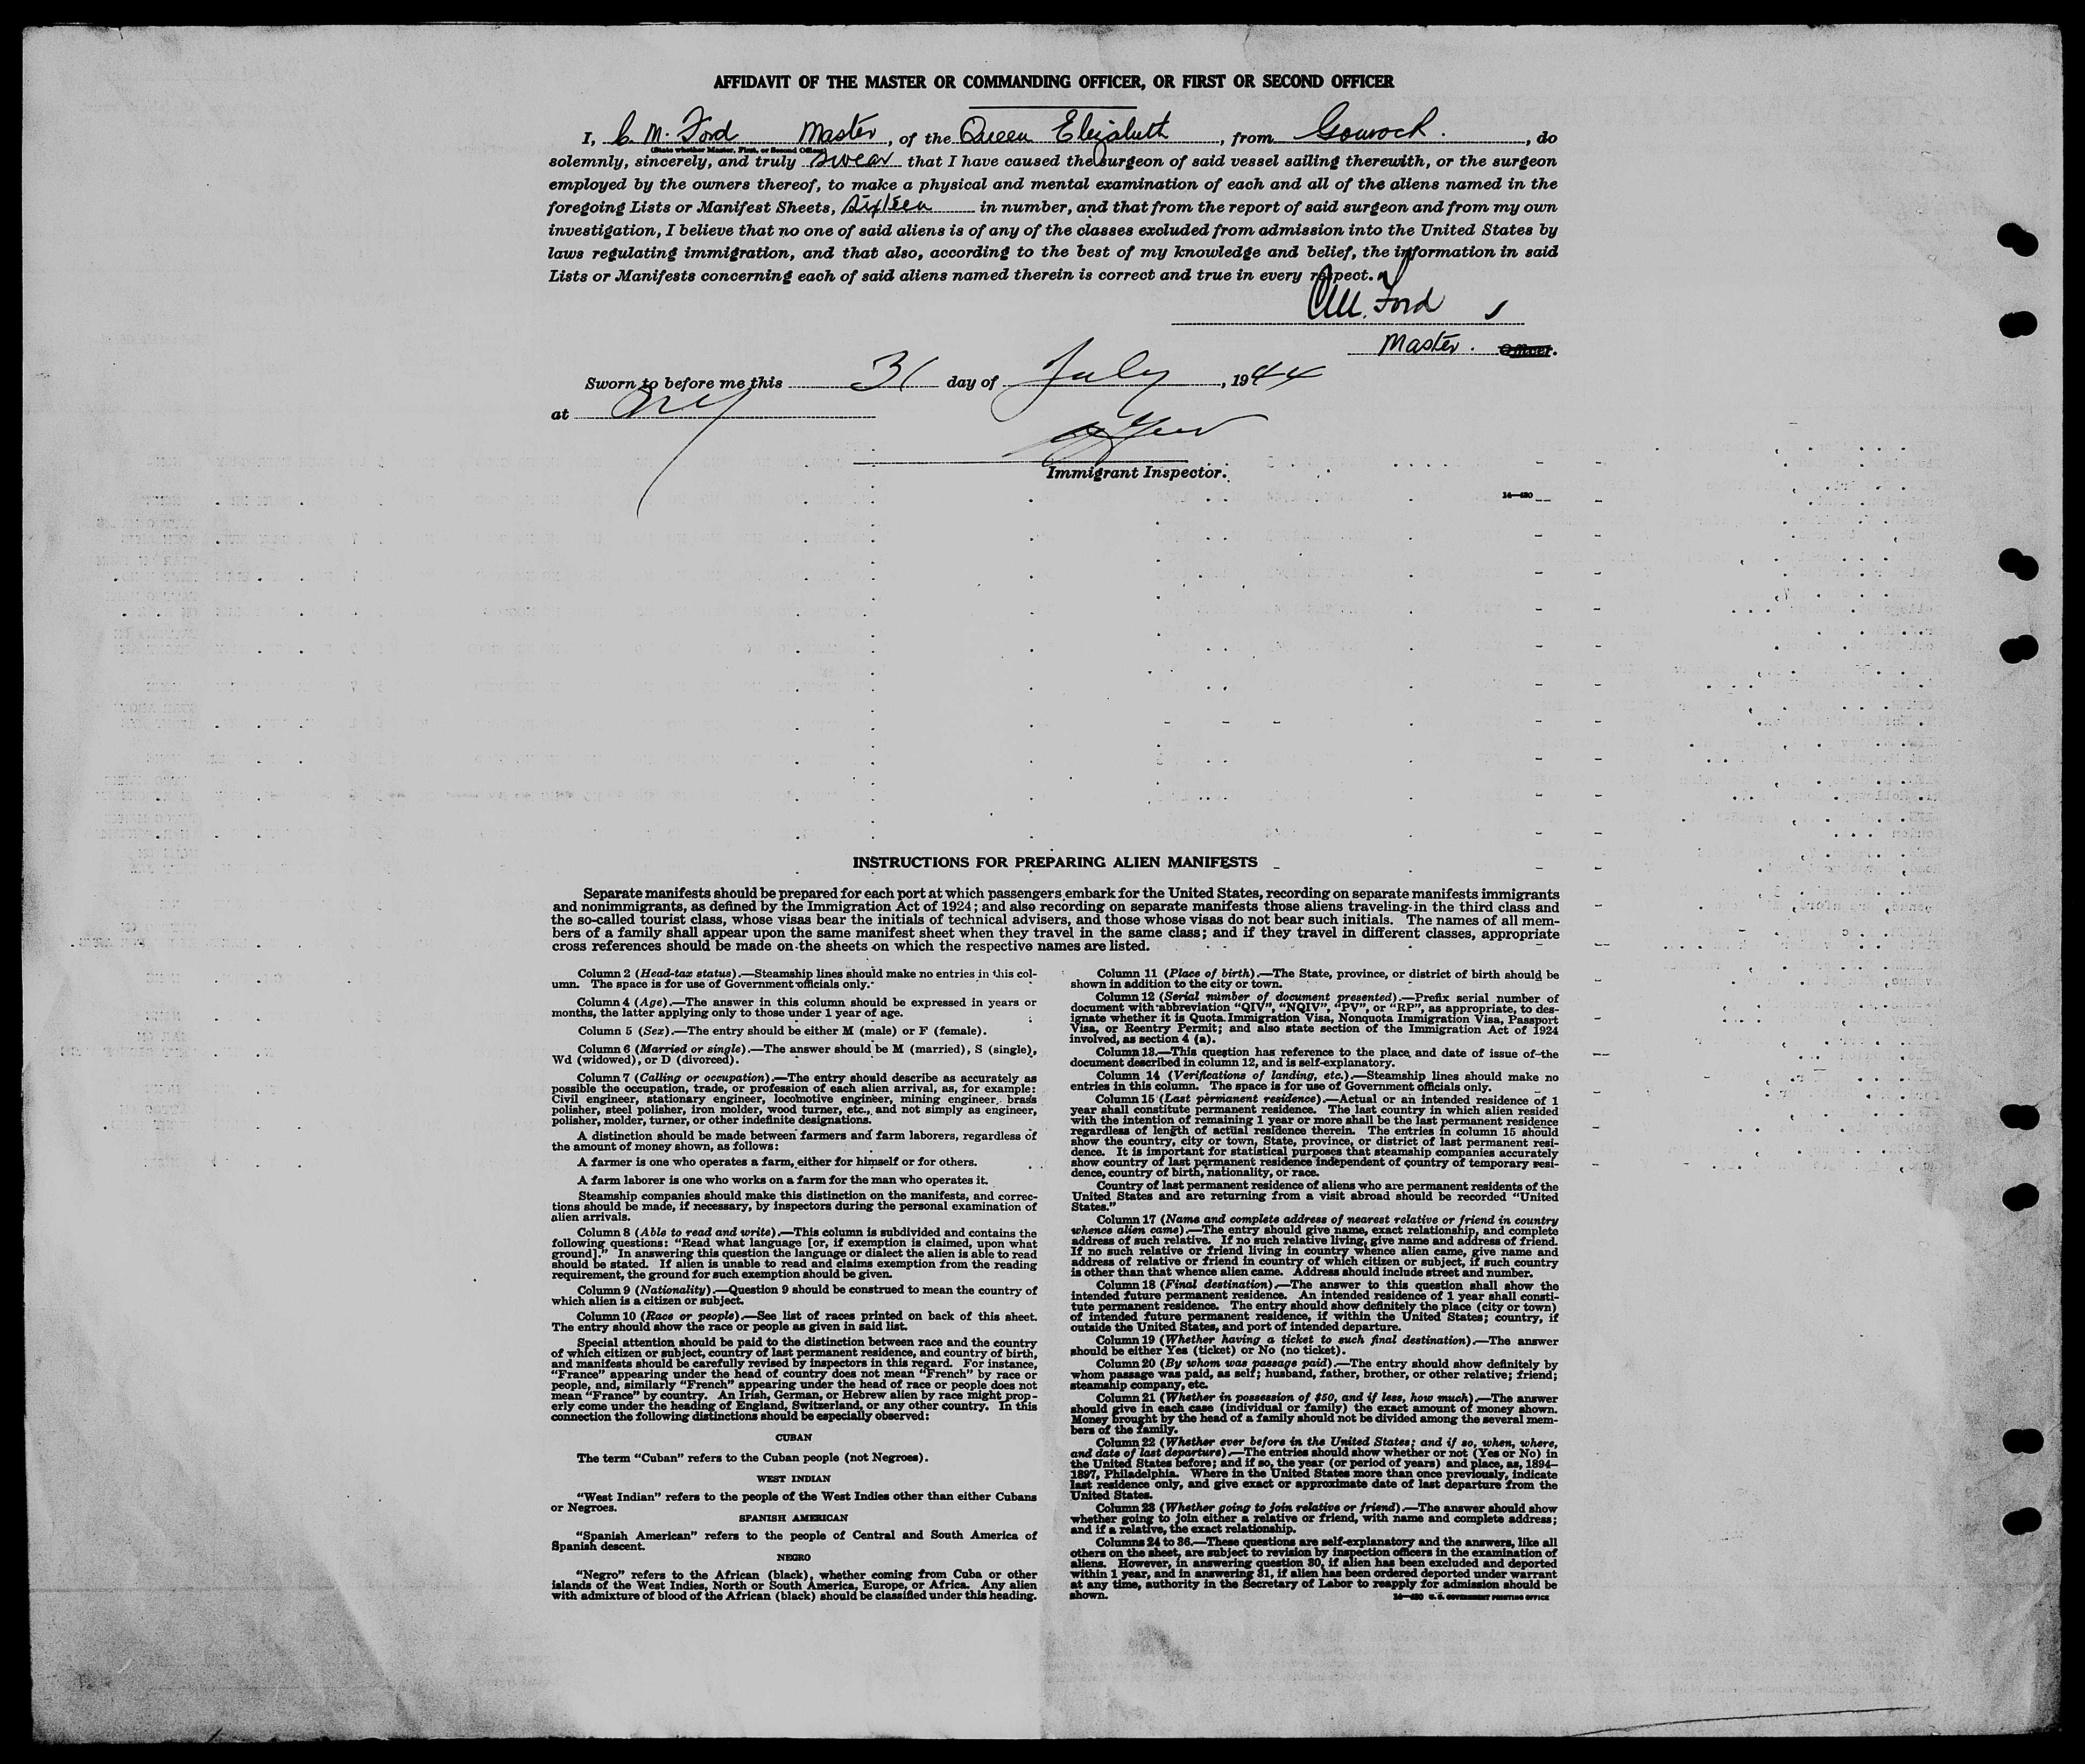 AFFIDAVIT OF THE MASTER OR COMMANDING OFFICER, OR FIRST OR SECOND OFFICER
I, C. M. Ford Master, of the Queen Elizabeth, from Gourock., do
(State whether Master, First, or Second Officer)
solemnly, sincerely, and truly swear that I have caused the surgeon of said vessel sailing therewith, or the surgeon
employed by the owners thereof, to make a physical and mental examination of each and all of the aliens named in the
foregoing Lists or Manifest Sheets, sixteen in number, and that from the report of said surgeon and from my own
investigation, I believe that no one of said aliens is of any of the classes excluded from admission into the United States by
laws regulating immigration, and that also, according to the best of my knowledge and belief, the information in said
Lists or Manifests concerning each of said aliens named therein is correct and true in every respect.
C.M. Ford
Master. Officer.
Sworn to before me this 31 day of July, 1944
at NY
Immigrant Inspector.
14—430
INSTRUCTIONS FOR PREPARING ALIEN MANIFESTS
Separate manifests should be prepared for each port at which passengers embark for the United States, recording on separate manifests immigrants
and nonimmigrants, as defined by the Immigration Act of 1924; and also recording on separate manifests those aliens traveling in the third class and
the so-called tourist class, whose visas bear the initials of technical advisers, and those whose visas do not bear such initials. The names of all mem-
bers of a family shall appear upon the same manifest sheet when they travel in the same class; and if they travel in different classes, appropriate
cross references should be made on the sheets on which the respective names are listed.
Column 2 (Head-tax status).—Steamship lines should make no entries in this col-
umn. The space is for use of Government officials only.
Column 4 (Age).—The answer in this column should be expressed in years or
months, the latter applying only to those under 1 year of age.
Column 5 (Sex).—The entry should be either M (male) or F (female).
Column 6 (Married or single).—The answer should be M (married), S (single),
Wd (widowed), or D (divorced).
Column 7 (Calling or occupation).—The entry should describe as accurately as
possible the occupation, trade, or profession of each alien arrival, as, for example:
Civil engineer, stationary engineer, locomotive engineer, mining engineer, brass
polisher, steel polisher, iron molder, wood turner, etc., and not simply as engineer,
polisher, molder, turner, or other indefinite designations.
A distinction should be made between farmers and farm laborers, regardless of
the amount of money shown, as follows:
A farmer is one who operates a farm, either for himself or for others.
A farm laborer is one who works on a farm for the man who operates it.
Steamship companies should make this distinction on the manifests, and correc-
tions should be made, if necessary, by inspectors during the personal examination of
alien arrivals.
Column 8 (Able to read and write).—This column is subdivided and contains the
following questions: "Read what language [or, if exemption is claimed, upon what
ground]." In answering this question the language or dialect the alien is able to read
should be stated. If alien is unable to read and claims exemption from the reading
requirement, the ground for such exemption should be given.
Column 9 (Nationality).—Question 9 should be construed to mean the country of
which alien is a citizen or subject.
Column 10 (Race or people).—See list of races printed on back of this sheet.
The entry should show the race or people as given in said list.
Special attention should be paid to the distinction between race and the country
of which citizen or subject, country of last permanent residence, and country of birth,
and manifests should be carefully revised by inspectors in this regard. For instance,
"France" appearing under the head of country does not mean "French" by race or
people, and, similarly "French" appearing under the head of race or people does not
mean "France" by country. An Irish, German, or Hebrew alien by race might prop-
erly come under the heading of England, Switzerland, or any other country. In this
connection the following distinctions should be especially observed:
CUBAN
The term "Cuban" refers to the Cuban people (not Negroes).
WEST INDIAN
"West Indian" refers to the people of the West Indies other than either Cubans
or Negroes.
SPANISH AMERICAN
"Spanish American" refers to the people of Central and South America of
Spanish descent.
NEGRO
"Negro" refers to the African (black), whether coming from Cuba or other
islands of the West Indies, North or South America, Europe, or Africa. Any alien
with admixture of blood of the African (black) should be classified under this heading.
Column 11 (Place of birth).—The State, province, or district of birth should be
shown in addition to the city or town.
Column 12 (Serial number of document presented).—Prefix serial number of
document with abbreviation "QIV", "NQIV", "PV", or "RP", as appropriate, to des-
ignate whether it is Quota Immigration Visa, Nonquota Immigration Visa, Passport
Visa, or Reentry Permit; and also state section of the Immigration Act of 1924
involved, as section 4 (a).
Column 13.—This question has reference to the place and date of issue of the
document described in column 12, and is self-explanatory.
Column 14 (Verifications of landing, etc.).—Steamship lines should make no
entries in this column. The space is for use of Government officials only.
Column 15 (Last permanent residence).—Actual or an intended residence of 1
year shall constitute permanent residence. The last country in which alien resided
with the intention of remaining 1 year or more shall be the last permanent residence
regardless of length of actual residence therein. The entries in column 15 should
show the country, city or town, State, province, or district of last permanent resi-
dence. It is important for statistical purposes that steamship companies accurately
show country of last permanent residence independent of country of temporary resi-
dence, country of birth, nationality, or race.
Country of last permanent residence of aliens who are permanent residents of the
United States and are returning from a visit abroad should be recorded "United
States."
Column 17 (Name and complete address of nearest relative or friend in country
whence alien came).—The entry should give name, exact relationship, and complete
address of such relative. If no such relative living, give name and address of friend.
If no such relative or friend living in country whence alien came, give name and
address of relative or friend in country of which citizen or subject, if such country
is other than that whence alien came. Address should include street and number.
Column 18 (Final destination).—The answer to this question shall show the
intended future permanent residence. An intended residence of 1 year shall consti-
tute permanent residence. The entry should show definitely the place (city or town)
of intended future permanent residence, if within the United States; country, if
outside the United States, and port of intended departure.
Column 19 (Whether having a ticket to such final destination).—The answer
should be either Yes (ticket) or No (no ticket).
Column 20 (By whom was passage paid).—The entry should show definitely by
whom passage was paid, as self; husband, father, brother, or other relative; friend;
steamship company, etc.
Column 21 (Whether in possession of $50, and if less, how much).—The answer
should give in each case (individual or family) the exact amount of money shown.
Money brought by the head of a family should not be divided among the several mem-
bers of the family.
Column 22 (Whether ever before in the United States; and if so, when, where,
and date of last departure).—The entries should show whether or not (Yes or No) in
the United States before; and if so, the year (or period of years) and place, as, 1894–
1897, Philadelphia. Where in the United States more than once previously, indicate
last residence only, and give exact or approximate date of last departure from the
United States.
Column 23 (Whether going to join relative or friend).—The answer should show
whether going to join either a relative or friend, with name and complete address;
and if a relative, the exact relationship.
Columns 24 to 36.—These questions are self-explanatory and the answers, like all
others on the sheet, are subject to revision by inspection officers in the examination of
aliens. However, in answering question 30, if alien has been excluded and deported
within 1 year, and in answering 31, if alien has been ordered deported under warrant
at any time, authority in the Secretary of Labor to reapply for admission should be
shown.
14—430 U. S. GOVERNMENT PRINTING OFFICE